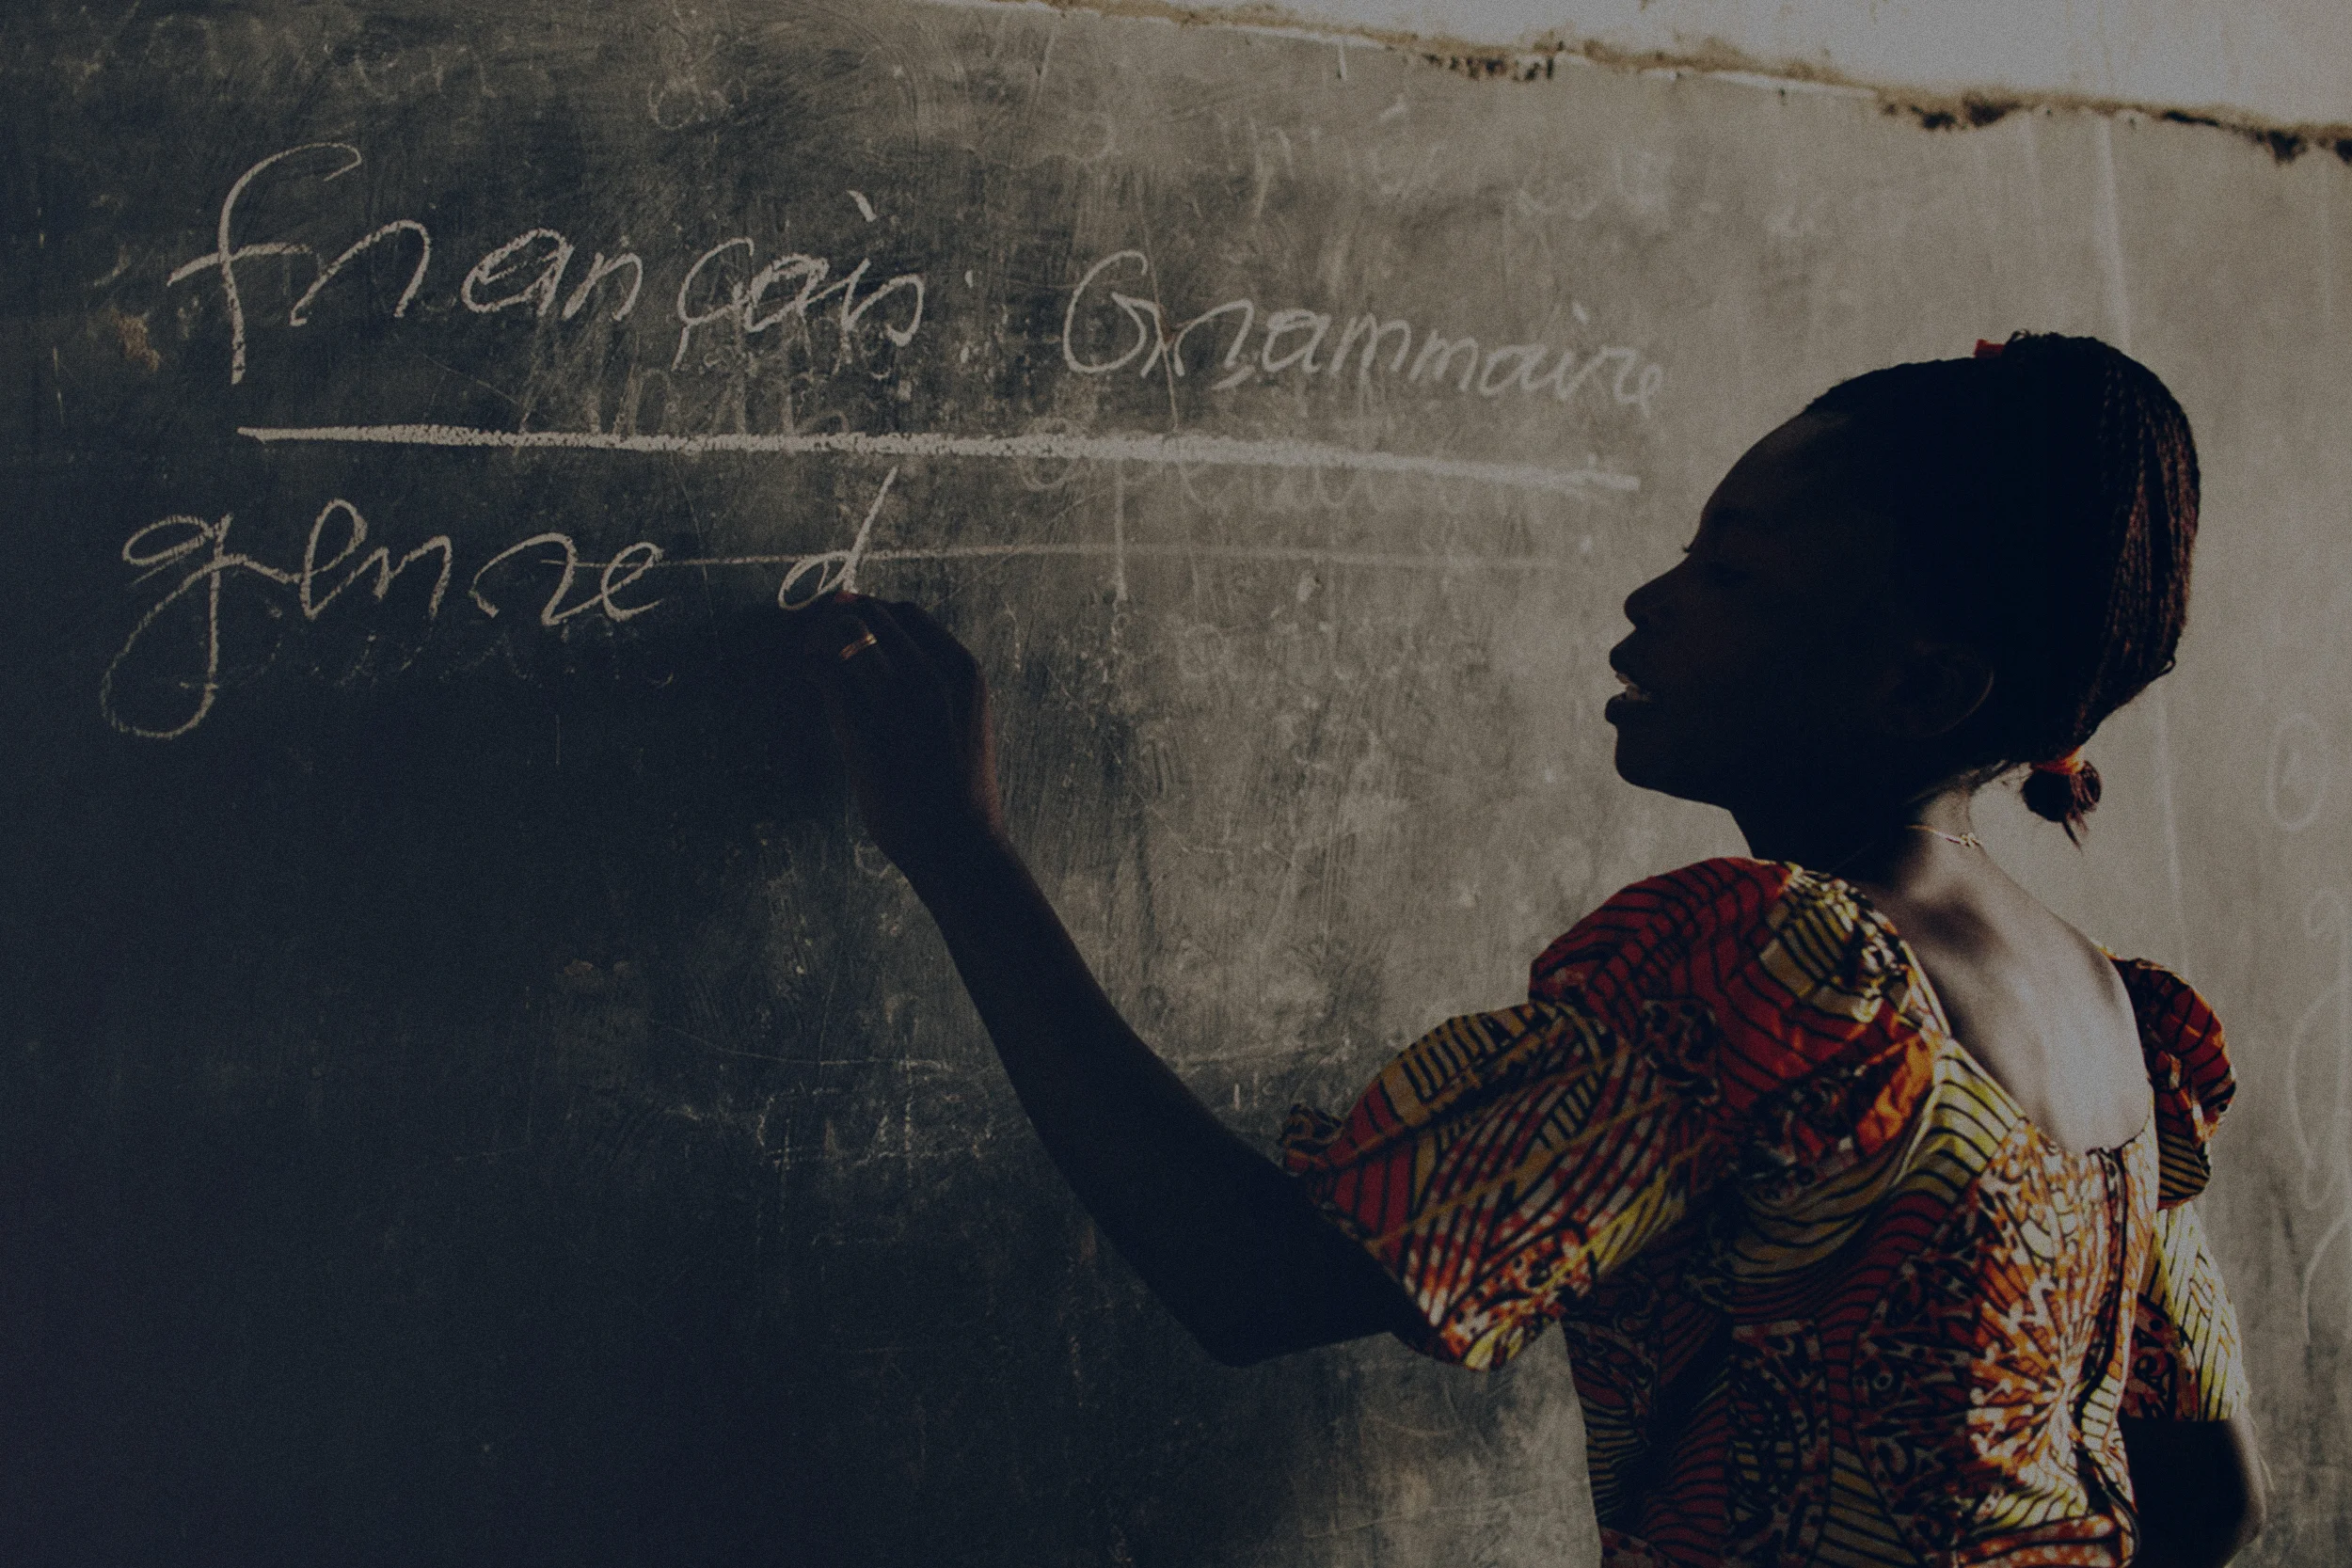 français: Grammaire
genre d